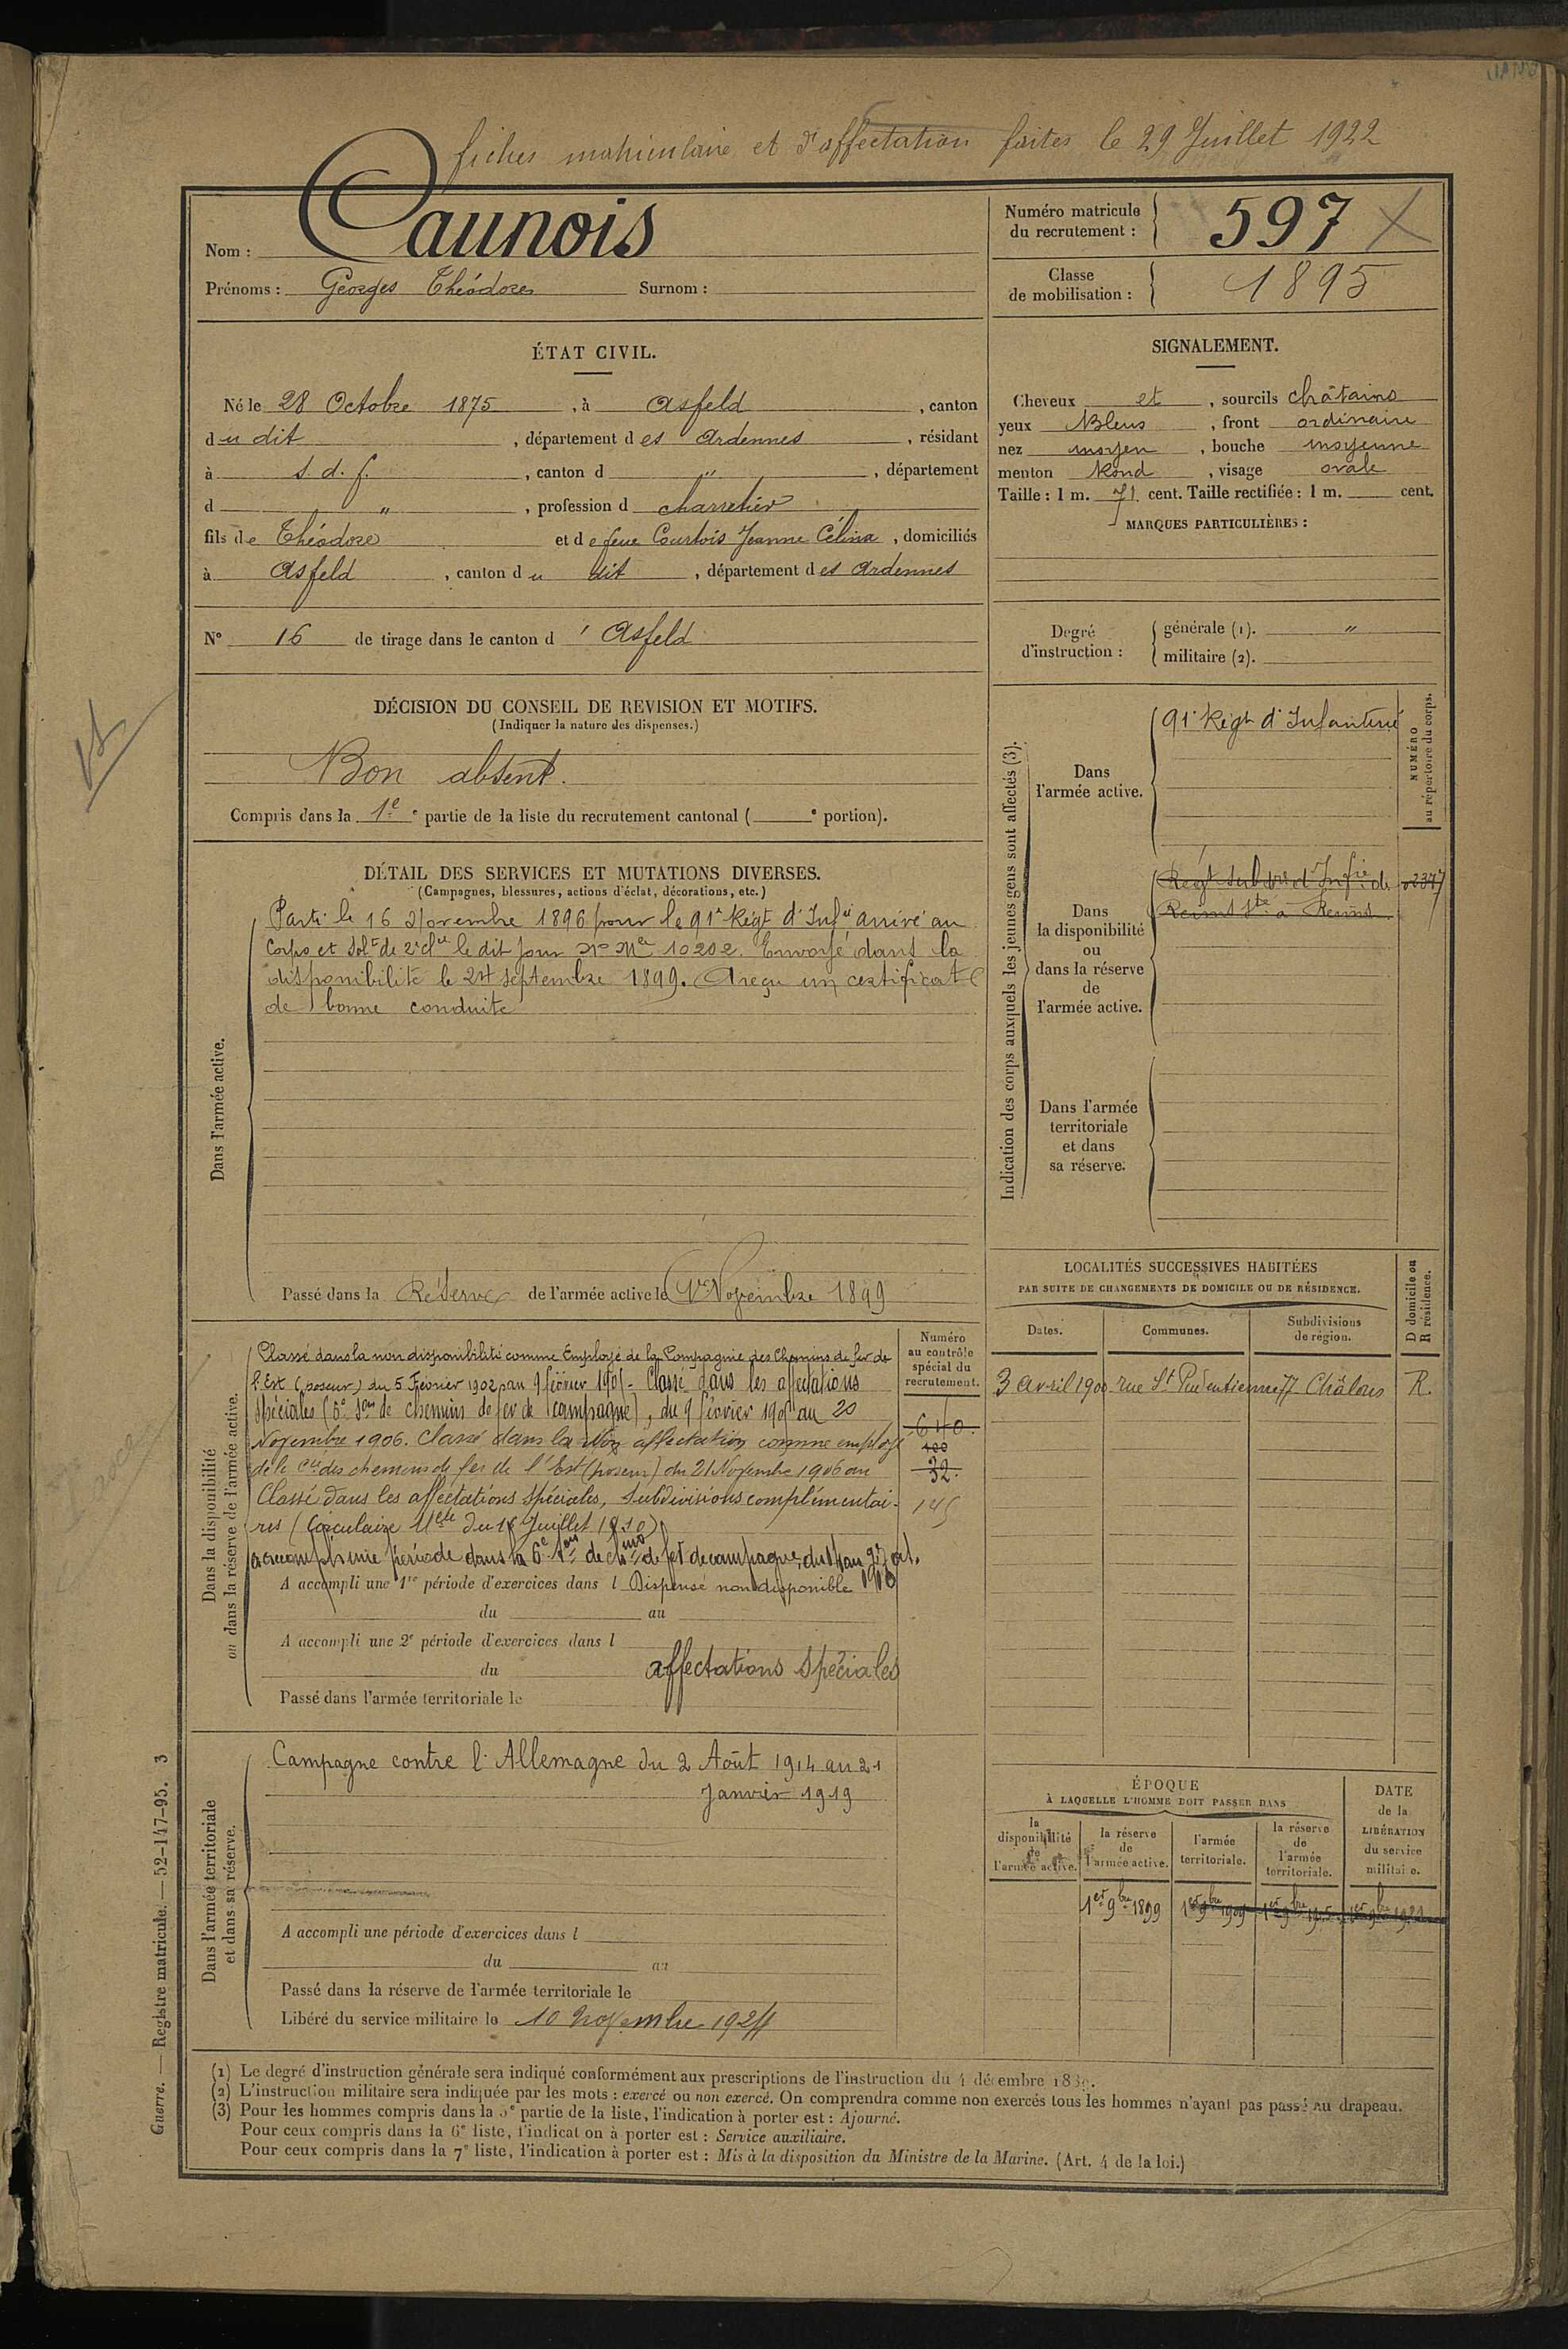 fiches matriculaire et d'affectation faites le 29 Juillet 1922
Nom : Caunois
Prénoms : Georges Théodore Surnom :
Numéro matricule du recrutement : 597
Classe de mobilisation : 1895
ÉTAT CIVIL.
Né le 28 Octobre 1875, à Asfeld, canton
du dit, département des Ardennes, résidant
à s. d. f., canton d ", département
d ", profession d charretier
fils de Théodore et de feue Courtois Jeanne Célina, domiciliés
à Asfeld, canton du dit, département des Ardennes
N° 16 de tirage dans le canton d'Asfeld
SIGNALEMENT.
Cheveux et, sourcils châtains
yeux Bleus, front ordinaire
nez moyen, bouche moyenne
menton Rond, visage ovale
Taille : 1 m. 71 cent. Taille rectifiée : 1 m. cent.
MARQUES PARTICULIÈRES :
Degré d'instruction :
générale (1). "
militaire (2).
DÉCISION DU CONSEIL DE REVISION ET MOTIFS.
(Indiquer la nature des dispenses.)
Bon absent.
Compris dans la 1e e partie de la liste du recrutement cantonal ( e portion).
DÉTAIL DES SERVICES ET MUTATIONS DIVERSES.
(Campagnes, blessures, actions d'éclat, décorations, etc.)
Dans l'armée active.
Parti le 16 Novembre 1896 pour le 91e Régt d'Infie arrivé au
Corps et Solt de 2e cl le dit jour No Mle 10202. Envoyé dans la
disponibilité le 24 septembre 1899. A reçu un certificat
de bonne conduite
Passé dans la Réserve de l'armée active le 1er Novembre 1899
Indication des corps auxquels les jeunes gens sont affectés (3).
NUMÉRO au répertoire du corps.
Dans l'armée active.
91e Régt d'Infanterie
Dans la disponibilité ou dans la réserve de l'armée active.
Régt Subdre d'Infie de
Reims Ste à Reims
Dans l'armée territoriale et dans sa réserve.
Dans la disponibilité ou dans la réserve de l'armée active.
Numéro au contrôle spécial du recrutement.
Classé dans la non disponibilité comme Employé de la Compagnie des Chemins de fer de
l'Est (poseur) du 5 Février 1902 au 9 février 1905 - Classé dans les affectations
spéciales (5e Son de chemins de fer de campagne), du 9 février 1905 au 20
Novembre 1906. Classé dans la Non affectation comme employé
de la Cie des chemins de fer de l'Est (poseur) du 21 Novembre 1906 au
Classé dans les affectations spéciales, subdivisions complémentai-
res (Circulaire Melle du 16 Juillet 1910)
a accompli une période dans la 6e Son de chins de fer de campagne, du
640.
400
32.
145
A accompli une 1re période d'exercices dans l Dispensé non disponible 1910
du au
A accompli une 2e période d'exercices dans l
du affectations spéciales
Passé dans l'armée territoriale le
LOCALITÉS SUCCESSIVES HABITÉES
PAR SUITE DE CHANGEMENTS DE DOMICILE OU DE RÉSIDENCE.
D domicile ou R résidence.
Dates. Communes. Subdivisions de région.
3 avril 1900 rue St Pudentienne 77 Châlons R.
Dans l'armée territoriale et dans sa réserve.
Campagne contre l'Allemagne du 2 Août 1914 au 21
Janvier 1919
A accompli une période d'exercices dans l
du au
Passé dans la réserve de l'armée territoriale le
Libéré du service militaire le 10 Novembre 1924
ÉPOQUE
À LAQUELLE L'HOMME DOIT PASSER DANS
la disponibilité de l'armée active.
la réserve de l'armée active.
l'armée territoriale.
la réserve de l'armée territoriale.
DATE de la LIBÉRATION du service militaire.
1er 9bre 1899 1er 9bre 1909 1er 9bre 1915 1er 9bre 1921
(1) Le degré d'instruction générale sera indiqué conformément aux prescriptions de l'instruction du 4 décembre 1889.
(2) L'instruction militaire sera indiquée par les mots : exercé ou non exercé. On comprendra comme non exercés tous les hommes n'ayant pas passé au drapeau.
(3) Pour les hommes compris dans la 5e partie de la liste, l'indication à porter est : Ajourné.
Pour ceux compris dans la 6e liste, l'indication à porter est : Service auxiliaire.
Pour ceux compris dans la 7e liste, l'indication à porter est : Mis à la disposition du Ministre de la Marine. (Art. 4 de la loi.)
Guerre. — Registre matricule. — 52-147-95. 3